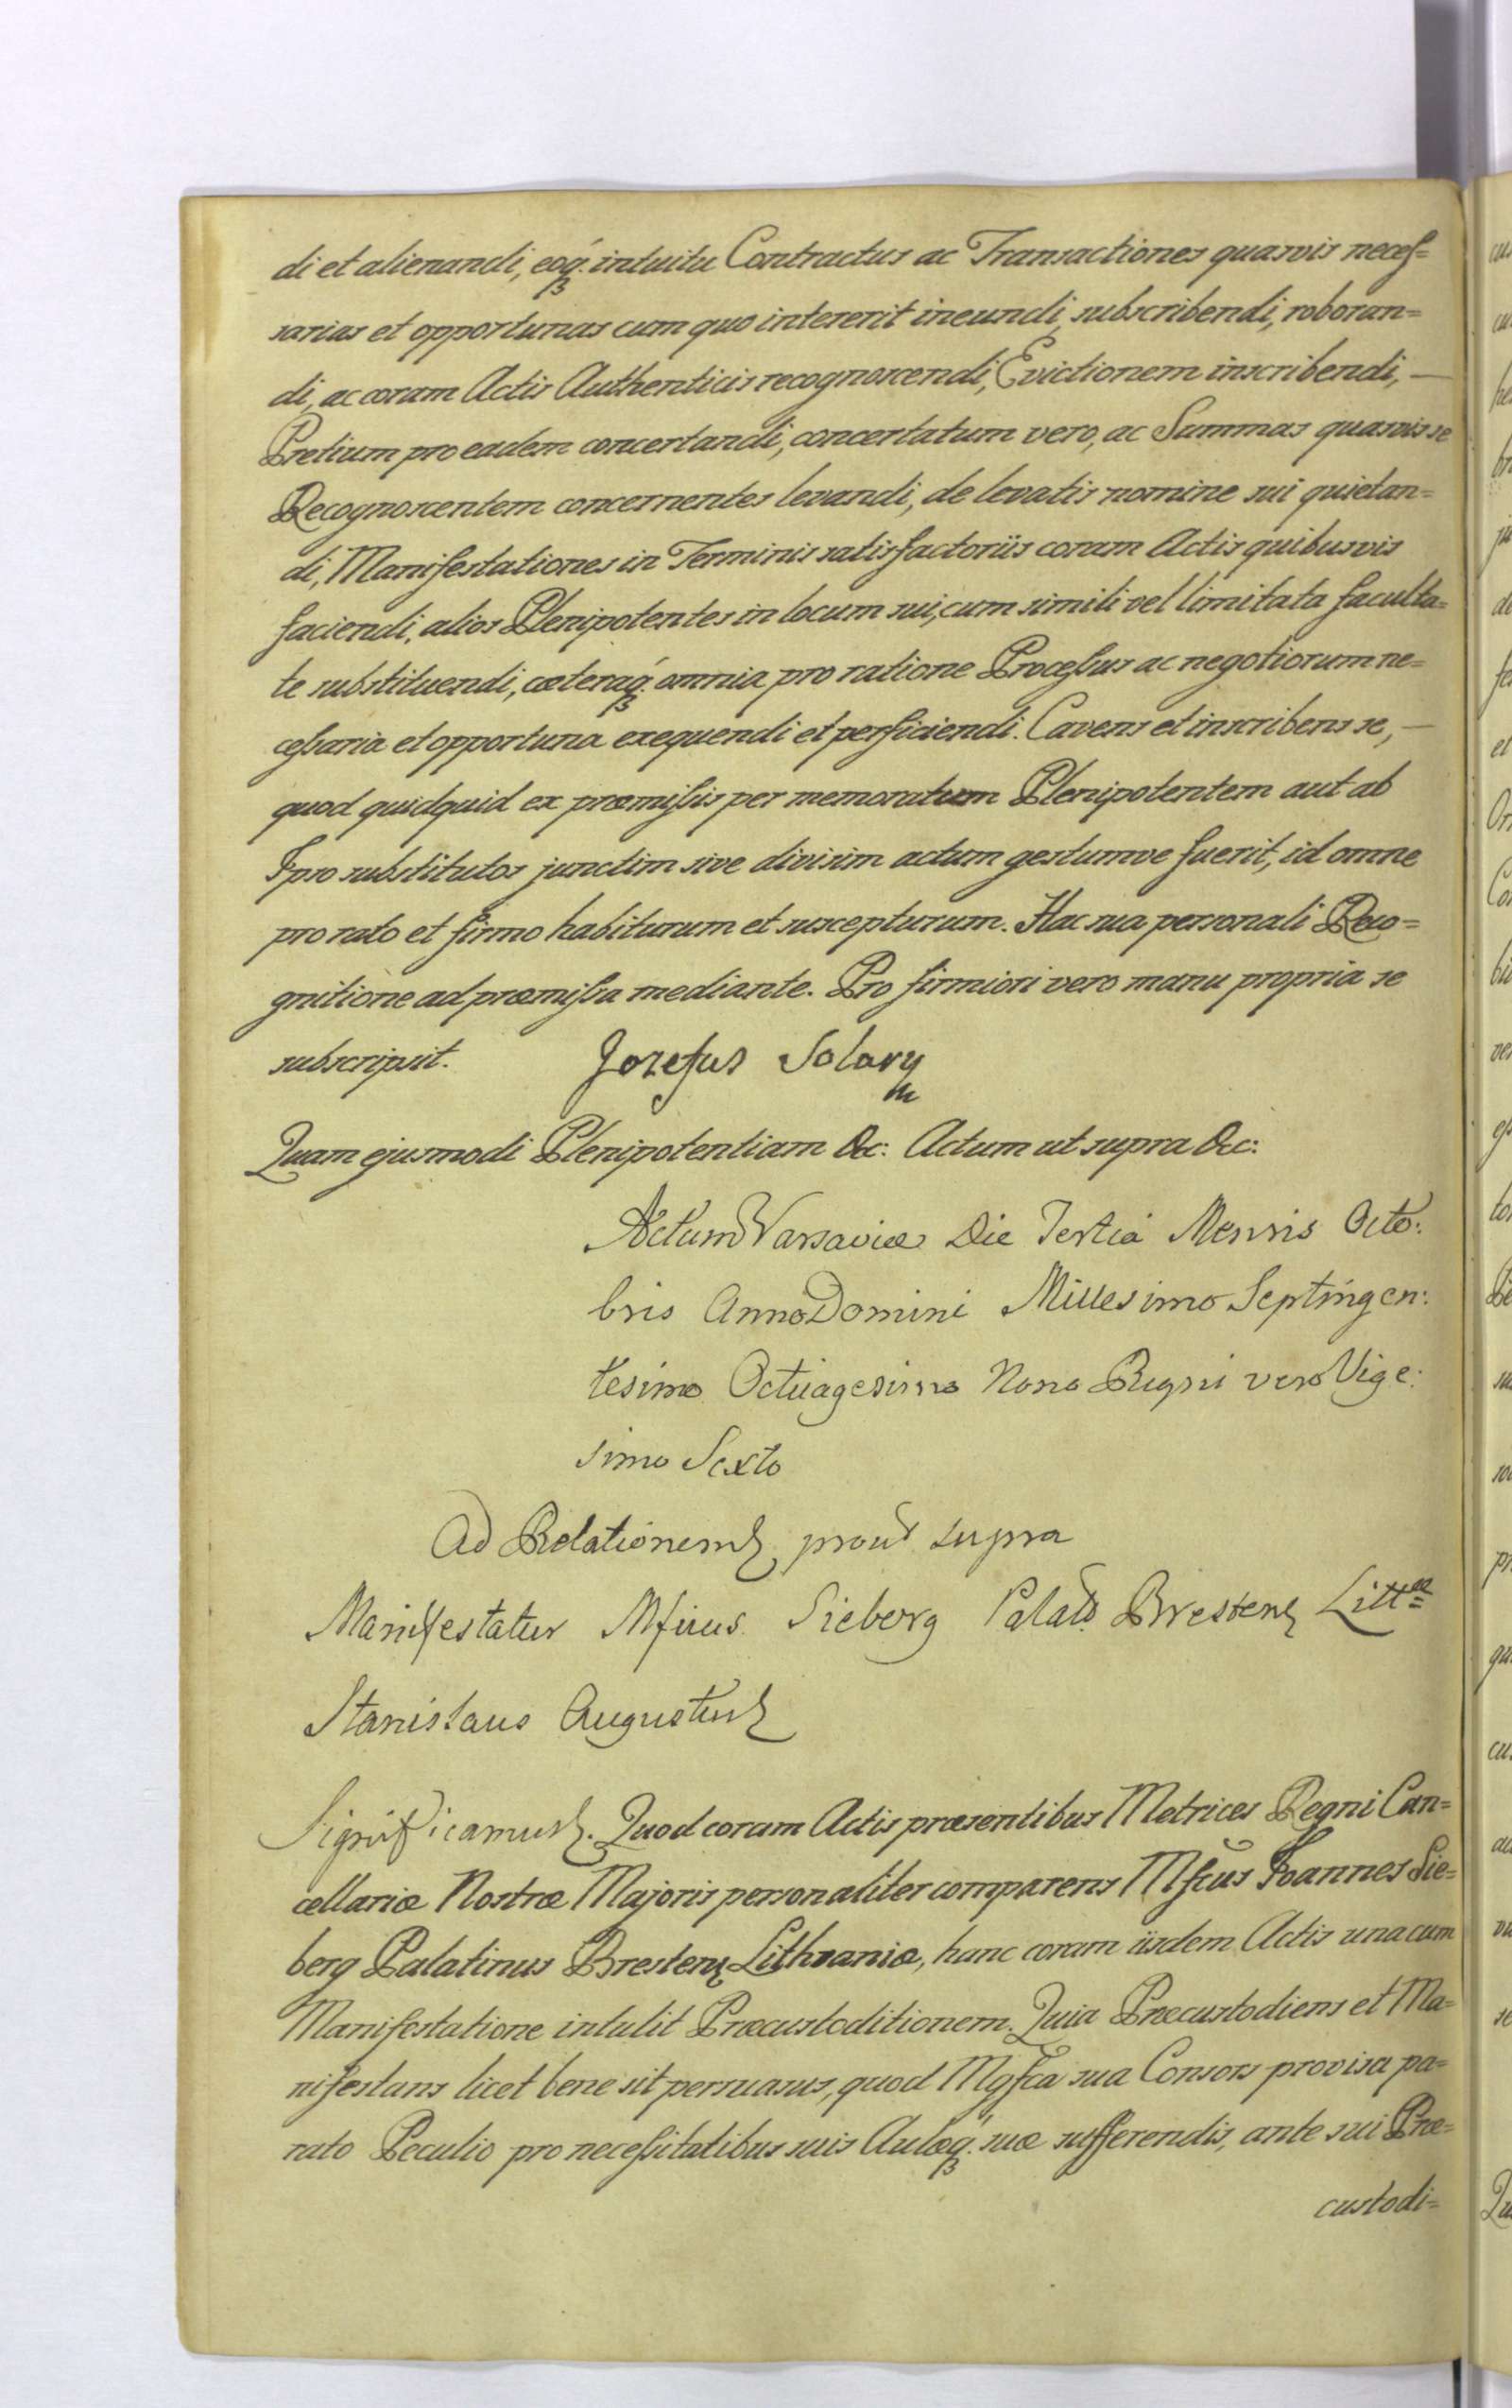 di et alienandi, eoq́ꝫ intuitu Contractus ac Transactiones quasvis neces=
sarias et opportunas cum quo intererit ineundi, subscribendi, roboran=
di, ac coram Actis Authenticis recognoscendi, Evictionem inscribendi, —
Pretium pro eadem concertandi, concertatum vero, ac Summas quasvis se
Recognoscentem concernentes levandi, de levatis nomine sui quietan=
di, Manifestationes in Terminis satisfactoriis coram Actis quibusvis
faciendi, alios Plenipotentes in locum sui, cum simili vel limitata faculta=
te substituendi, cæteraq́ꝫ omnia pro ratione Processus ac negotiorum ne=
cessaria et opportuna exequendi et perficiendi. Cavens et inscribens se, —
quod quidquid ex præmissis per memoratum Plenipotentem aut ab
Ipso substitutos junctim sive divisim actum gestumve fuerit, id omne
pro rato et firmo habiturum et suscepturum. Hac sua personali Reco=
gnitione ad præmissa mediante. Pro firmiori vero manu propria se
subscripsit. Jozefus Solary
m
Quam ejusmodi Plenipotentiam &c: Actum ut supra &c:
Actum Varsaviæ Die Tertia Mensis Octo:
bris Anno Domini Millesimo Septingen:
tesimo Octuagesimo Nono Regni vero Vige:
simo Sexto
Ad Relationem prout supra
Manifestatur Mficus Sieberg Palat. Bresten Littæ
Stanislaus Augustus
Significamus. Quod coram Actis præsentibus Metrices Regni Can=
cellariæ Nostræ Majoris personaliter comparens Mfcus Joannes Sie=
berg Palatinus Bresten Lithvaniæ, hanc coram iisdem Actis una cum
Manifestatione intulit Præcustoditionem. Quia Præcustodiens et Ma=
nifestans licet bene sit persuasus, quod Mgfca sua Consors provisa pa=
rato Peculio pro necessitatibus suis Aulæq́ꝫ suæ sufferendis, ante sui Præ=
custodi=